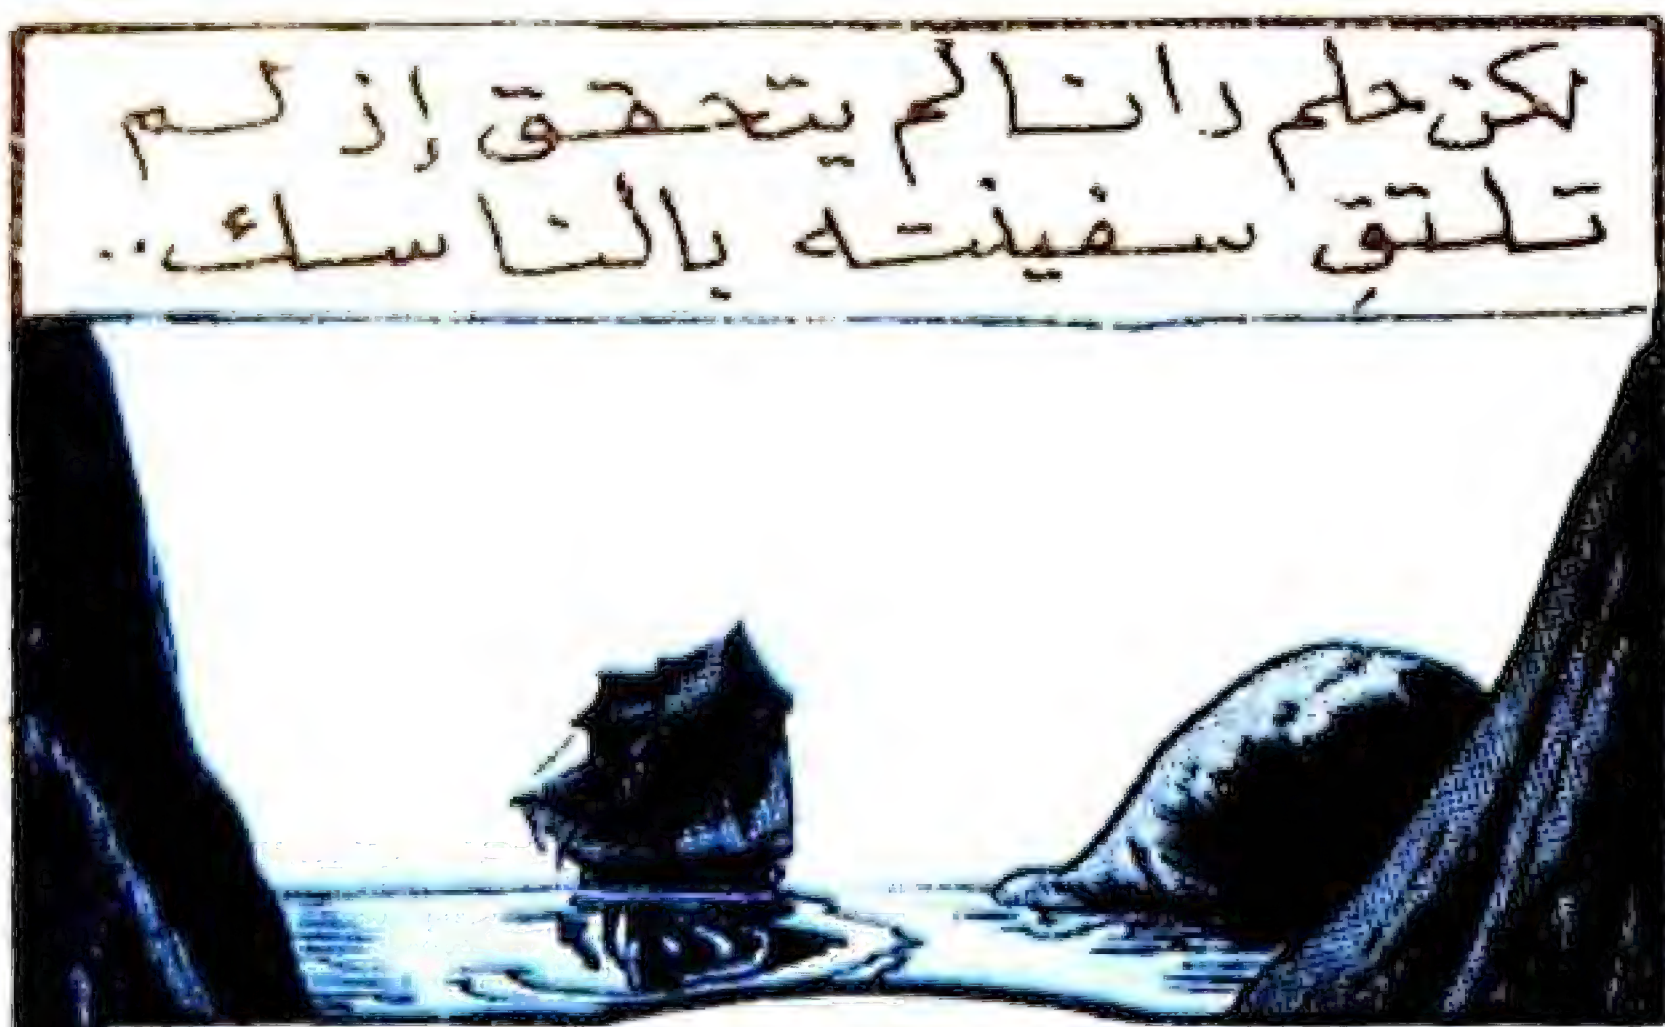 لكن حلم دانا لم يتحقق إذ لم
تلتقِ سفينته بالناسك..